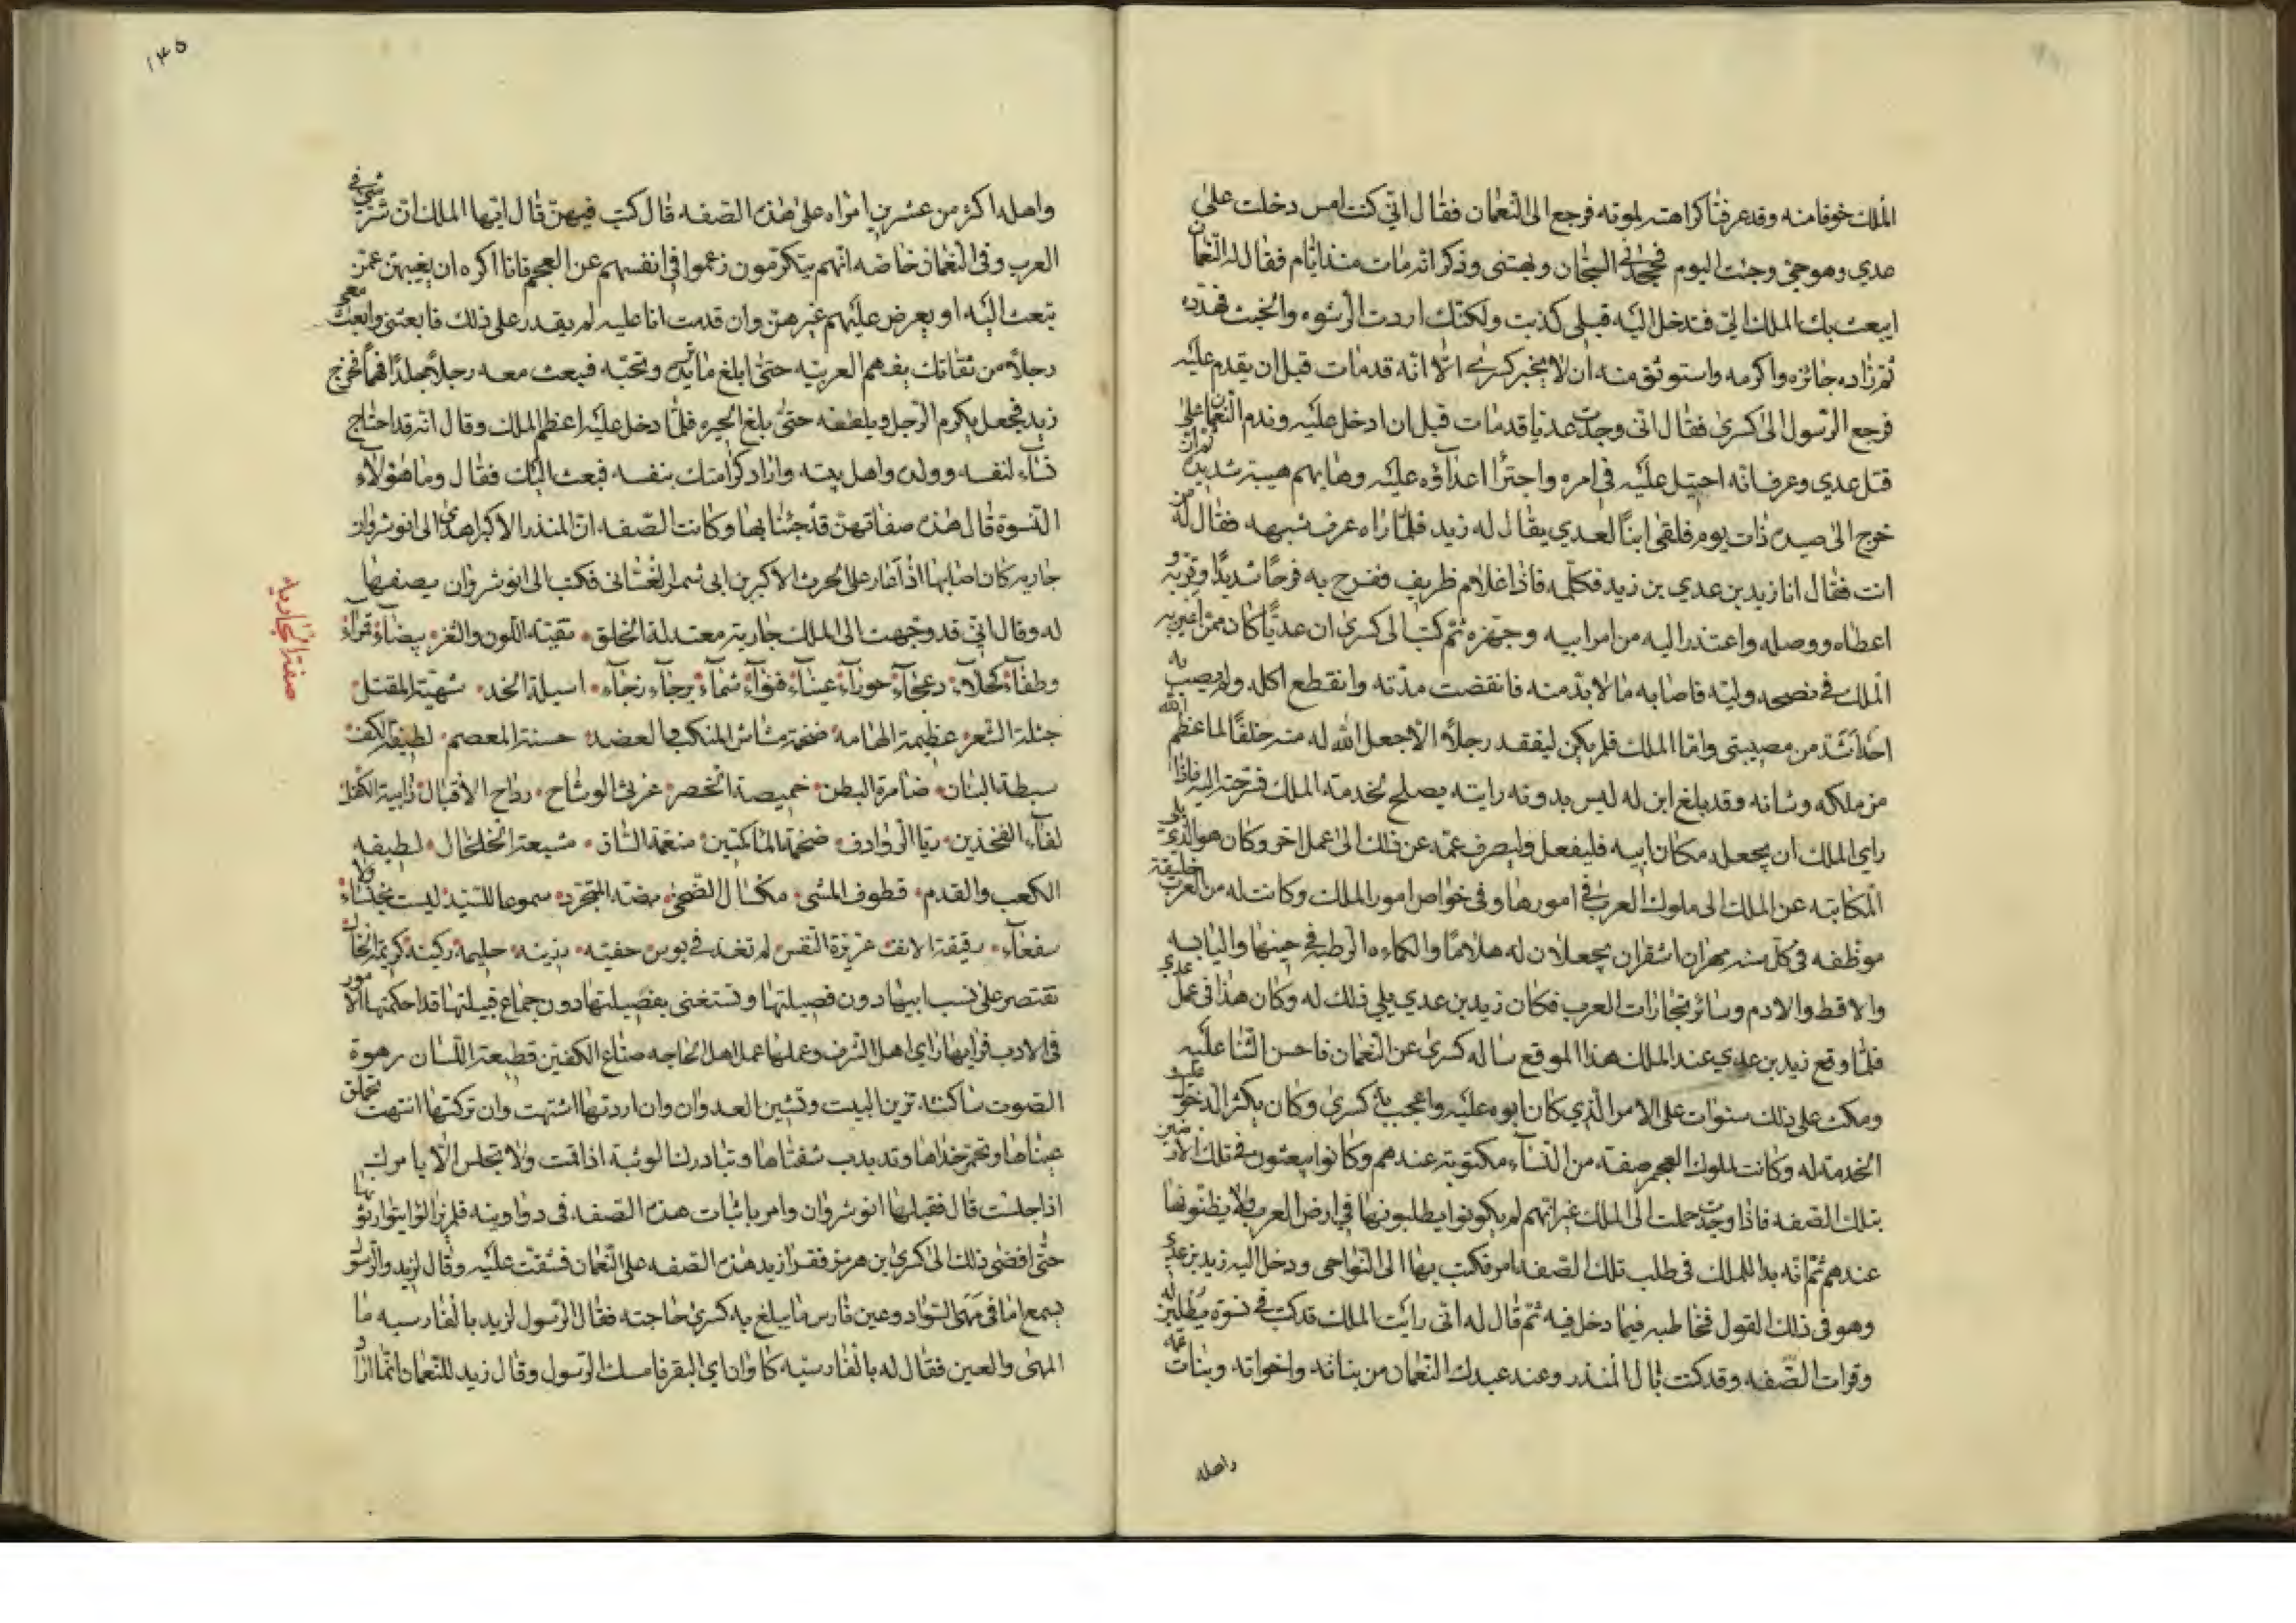 الملك خوفا منه وقد عرفنا كراهته لموته فرجع الى النعمان فقال انى كنت امس دخلت على
عدي وهو حي وجئت اليوم فجحدنى السجان وبهتنى وذكر انه مات منذ ايام فقال له النعمان
ايبعث بك الملك الي فتدخل اليه قبلى كذبت ولكنك اردت الرشوه والخبث فهدده
ثم زاده جائزه واكرمه واستوثق منه ان لا يخبر كسرى الا انه قد مات قبل ان يقدم عليه
فرجع الرسول الى كسرى فقال انى وجدت عديا قد مات قبل ان ادخل عليه وندم النعمان على
قتل عدي وعرف انه احتيل عليه فى امره واجترا اعداؤه عليه وهابهم هيبة شديده ثم انه
خرج الى صيده ذات يوم فلقى ابنا لعدي يقال له زيد فلما راه عرف شبهه فقال له من
انت فقال انا زيد بن عدي بن زيد فكلمه فاذا غلام ظريف ففرح به فرحا شديدا وقربه و
اعطاه ووصله واعتذر اليه من امر ابيه وجهزه ثم كتب الى كسرى ان عديا كان ممن اعين به
الملك فى نصحه ولبه فاصابه ما لا بد منه فانقضت مدته وانقطع اكله ولم يصب به
احد اشد من مصيبتى واما الملك فلم يكن ليفقد رجلا الا جعل الله له منه خلفا لما عظم الله
من ملكه وشانه وقد بلغ ابن له ليس بدونه رايته يصلح لخدمة الملك فسرحته اليه فاذا
راى الملك ان يجعله مكان ابيه فليفعل وليصرف عمه عن ذلك الى عمل اخر وكان هو الذى يلى
المكاتبه عن الملك الى ملوك العرب فى امورها وفى خواص امور الملك وكانت له من العرب وظيفة
موظفه فى كل سنه مهران اشقران يجعلان له هلاما والكماءه الرطبه فى حينها واليابسه
والاقط والادم وسائر تجارات العرب فكان زيد بن عدي يلى ذلك له وكان هذا فى عمل عدي
فلما وقع زيد بن عدي عند الملك هذا الموقع ساله كسرى عن النعمان فاحسن الثنا عليه
ومكث على ذلك سنوات على الامر الذي كان ابوه عليه واعجب به كسرى وكان يكثر الدخول عليه و
الخدمة له وكانت لملوك العجم صفة من النساء مكتوبة عندهم وكانوا يبعثون فى تلك الارضين
بتلك الصفه فاذا وجدت حملت الى الملك غير انهم لم يكونوا يطلبونها فى ارض العرب ولا يظنونها
عندهم ثم انه بدا للملك فى طلب تلك الصفه فامر فكتب بها الى النواحى ودخل اليه زيد بن عدي
وهو فى ذلك القول فخاطبه فيما دخل فيه ثم قال له انى رايت الملك قد كتب فى نسوة يطلبن له
وقرات الصفه وقد كنت بال المنذر وعند عبدك النعمان من بناته واخواته وبنات عمه
واهله
١٤٥
واهله اكثر من عشرين امراه على هذه الصفه قال كتب فيهن قال ايها الملك ان شر شئ فى
العرب وفى النعمان خاصه انهم يتكرمون زعموا فى انفسهم عن العجم فانا اكره ان يغيبهن عمن
تبعث اليه او يعرض عليهم غيرهن وان قدمت انا عليه لم يقدر على ذلك فابعثنى وابعث معى
رجلا من ثقاتك يفهم العربيه حتى ابلغ ما تريد وتحبه فبعث معه رجلا جلدا فهما فخرج
زيد فجعل يكرم الرجل ويلطفه حتى بلغ الحيره فلما دخل عليه اعظم الملك وقال انه قد احتاج
نساء لنفسه وولده واهل بيته واراد كرامتك بنفسه فبعث اليك فقال وما هؤلاء
النسوة قال هذه صفاتهن قد جئنا بها وكانت الصفه ان المنذر الاكبر اهدى الى انوشروان
جاريه كان اصابها اذ اغار على الحرث الاكبر بن ابى شمر الغسانى فكتب الى انوشروان يصفها
له وقال انى قد وجهت الى الملك جارية معتدلة الخلق نقية اللون والثغر بيضاء قمراء
صفة الجاريه
وطفاء كحلاء دعجاء حوراء عيناء قنواء شماء برجاء زجاء اسيلة الخد شهية المقبل
جثلة الشعر عظيمة الهامه ضخمة مشاش المنكب والعضد حسنة المعصم لطيفة الكف
سبطة البنان ضامرة البطن خميصة الخصر غرثى الوشاح رداح الاقبال رابية الكفل
لفاء الفخذين ريا الروادف ضخمة الماكمتين منعمة الساق مشبعة الخلخال لطيفه
الكعب والقدم قطوف المشى مكسال الضحى بضة المتجرد سموعا للسيد ليست بخنساء ولا
سفعاء رقيقة الانف عزيزة النفس لم تغذ فى بوس حفيه رزينه حليمه ركينه كريمة الخال
تقتصر على نسب ابيها دون فصيلتها وتستغنى بفصيلتها دون جماع قبيلتها قد احكمتها الامور
فى الادب فرايها راى اهل الشرف وعملها عمل اهل الحاجه صناع الكفين قطيعة اللسان رهوة
الصوت ساكنته تزين البيت وتشين العدو ان وان اردتها اشتهت وان تركتها انتهت تحملق
عيناها وتحمر خداها وتدبدب شفتاها وتبادرك الوثبة اذا قمت ولا تجلس الا بامرك
اذا جلست قال فقبلها انوشروان وامر باثبات هذه الصفه فى دواوينه فلم يزالوا يتوارثونها
حتى افضى ذلك الى كسرى بن هرمز فقرا زيد هذه الصفه على النعمان فشقت عليه وقال لزيد والرسول
يسمع اما فى مهى السواد وعين فارس ما يبلغ به كسرى حاجته فقال الرسول لزيد بالفارسيه ما
المهى والعين فقال له بالفارسيه كاوان اى البقر فامسك الرسول وقال زيد للنعمان انما اراد